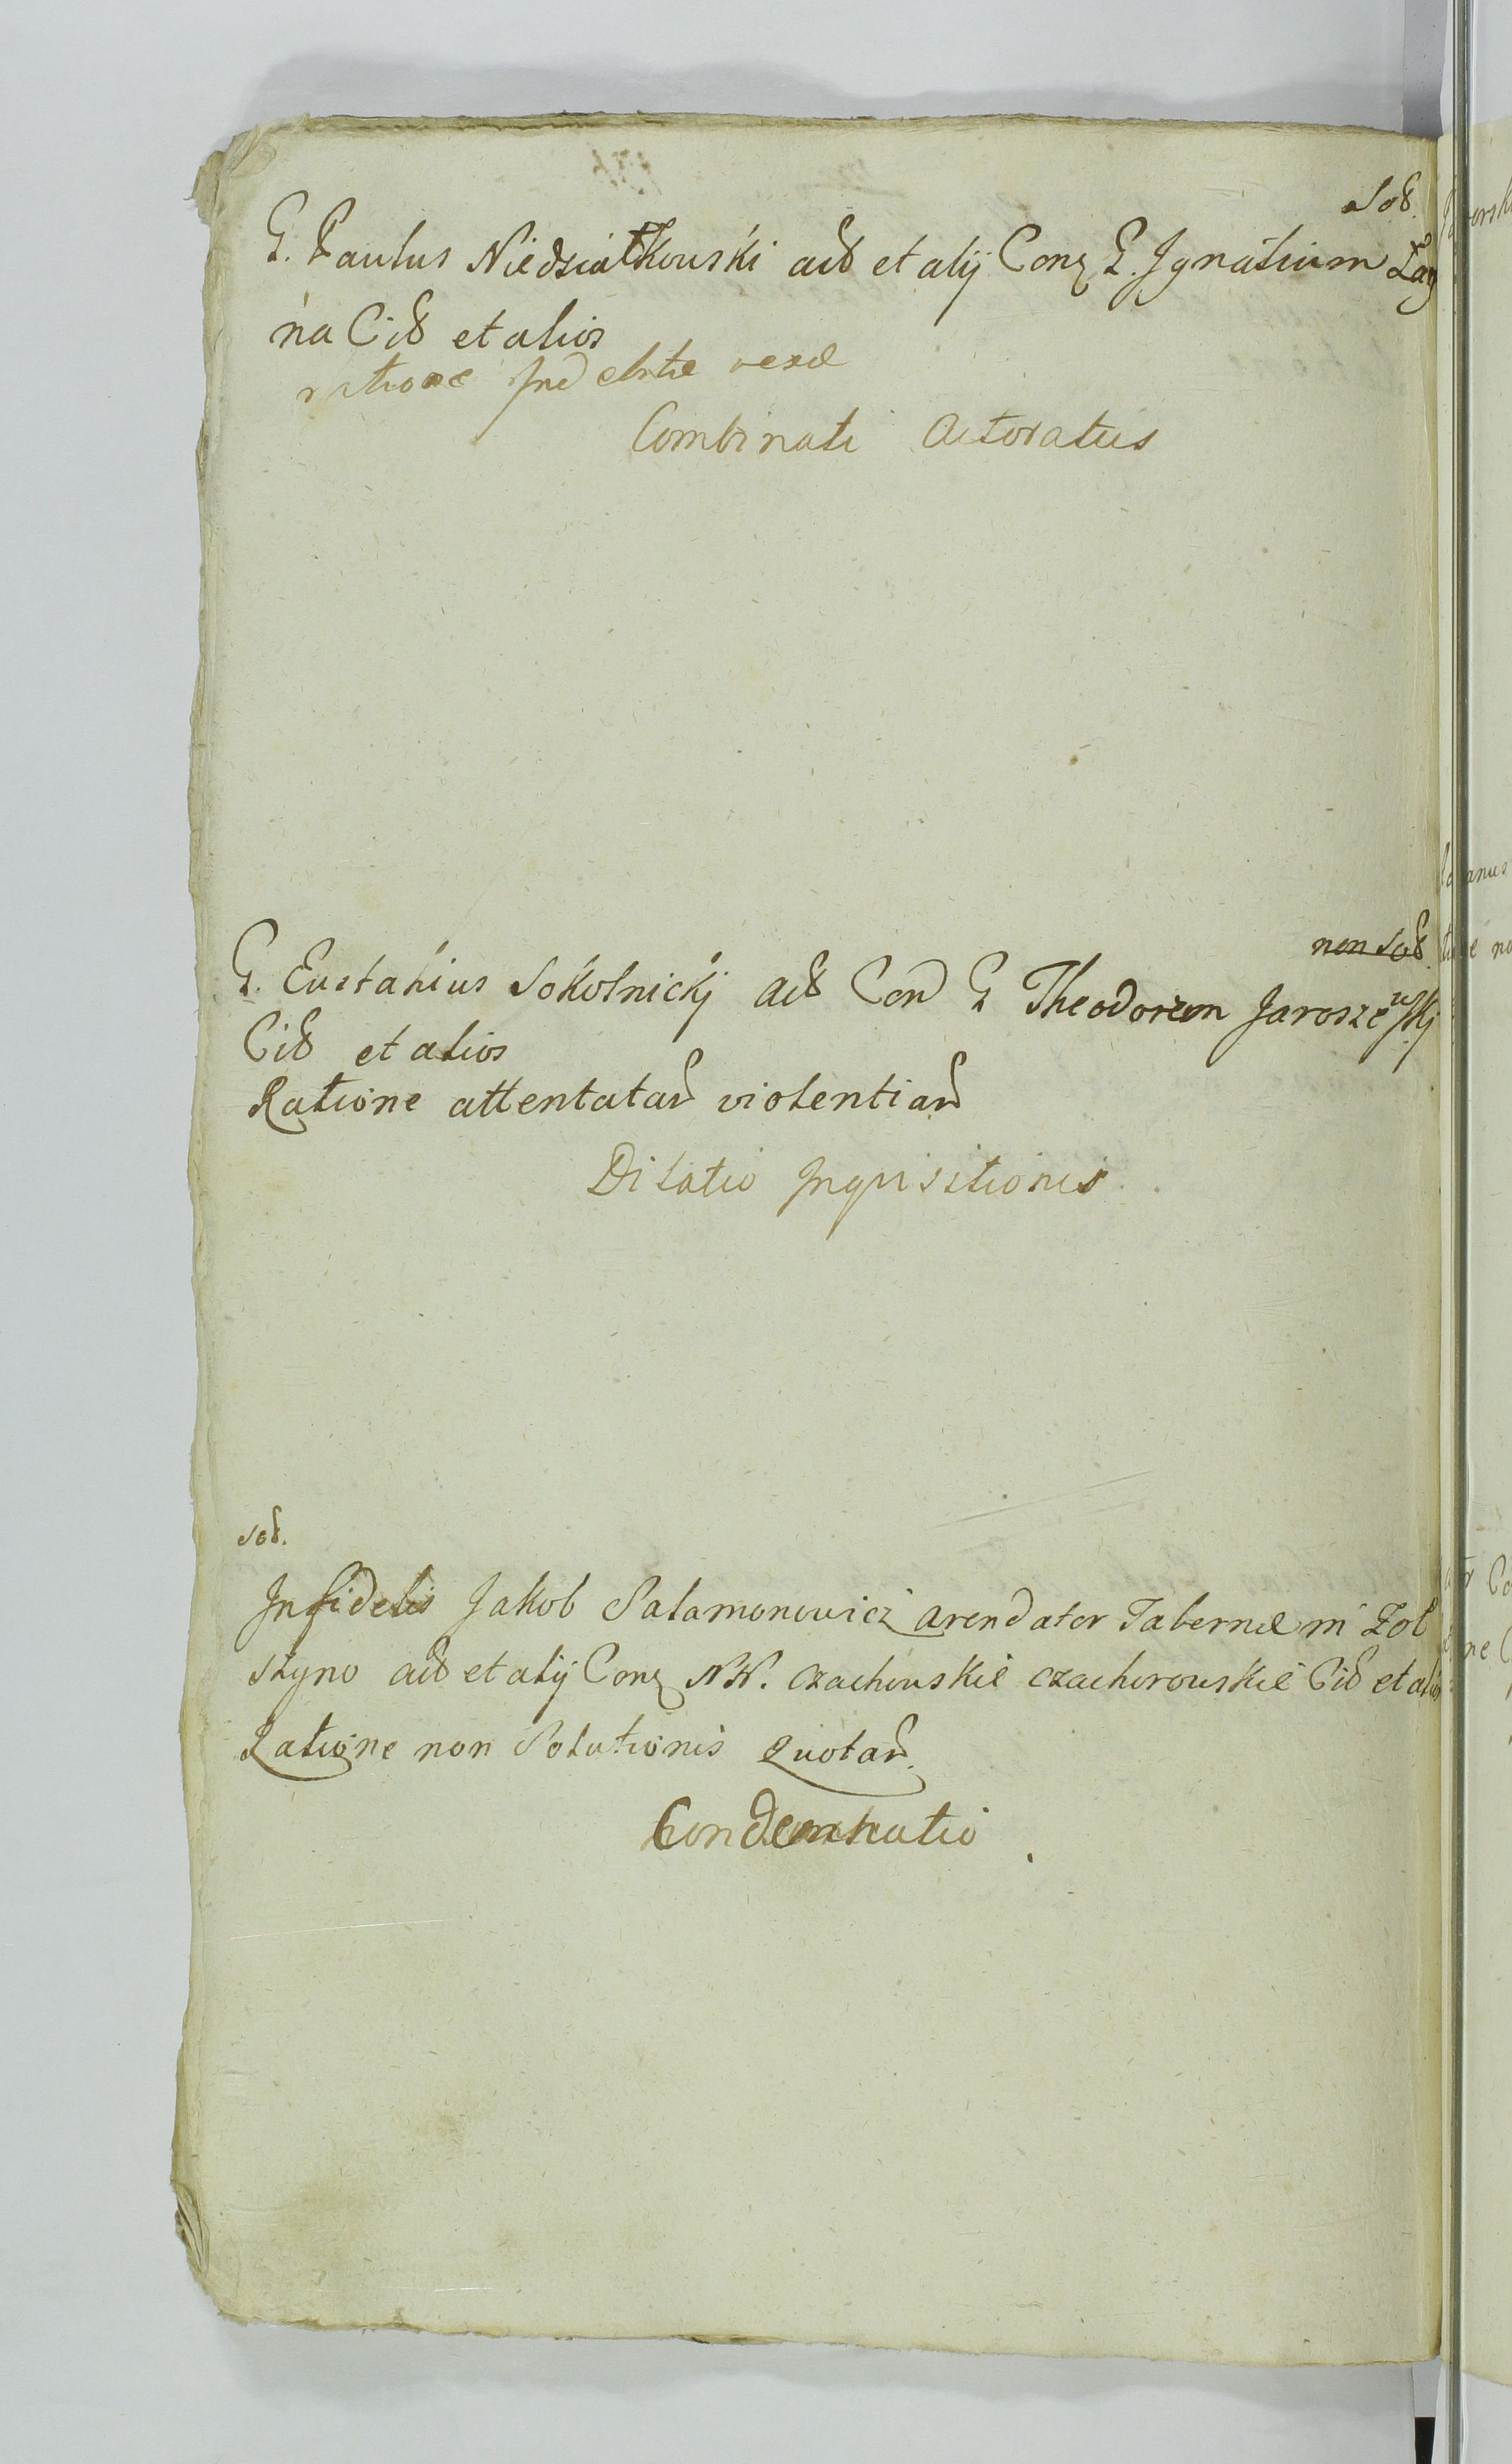 Sol.
G. Paulus Niedziałkowski act et alij Conq G. Ignatium Łag
na Cit et alios
ratione indebitæ vexæ
Combinati Actoratus
non sol.
G. Eustahius Sokolnickj act Con G Theodorem Jaroszewskj
Cit et alios
Ratione attentatar violentiar
Dilatio Inquisitionis
sol.
Infidelis Jakob Salamonowicz arendator Tabernæ in Zol
skyno act et alij Conq NN. Czachowskie Czachorowskie Cit et alios
Ratione non Solutionis quotar.
Condemnatio